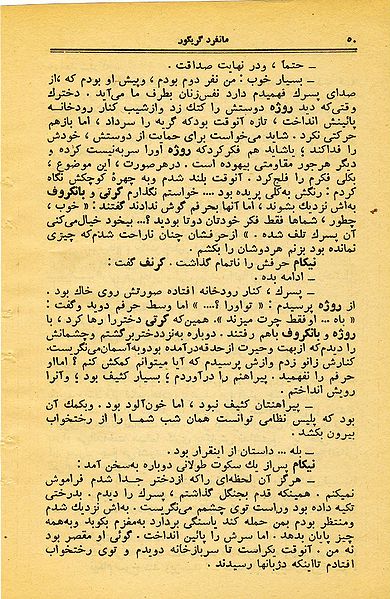 ۵۰ مانفرد گریگور
ــ حتماً ، ودر نهایت صداقت .
ــ بسیار خوب : من نفر دوم بودم ، وپیش او بودم که ،از
صدای پسرك فهمیدم دارد نفس‌زنان بطرف ما می‌آید . دخترك
وقتی‌که دید روژه دوستش را کتك زد وازشیب کنار رودخانه
پائینش انداخت ، تازه آنوقت بودکه گریه را سرداد ، اما بازهم
حرکتی نکرد . شاید می‌خواست برای حمایت از دوستش ، خودش
را فداکند ؛ یاشاید هم فکرکردکه روژه اورا سربه‌نیست کرده و
دیگر هرجور مقاومتی بیهوده است . درهرصورت ، این موضوع ،
بکلی فکرم را فلج‌کرد . آنوقت بلند شدم وبه چهرهٔ کوچکش نگاه
کردم : رنگش به‌کلی پریده بود .... خواستم نگذارم گرتی و بانگروف
به‌اش نزدیك بشوند ، اما آنها بحرفم گوش ندادند گفتند : « خوب ،
چطور ، شماها فقط فکر خودتان دوتا بودید ؟... بیخود خیال‌می‌کنی
آن پسرك تلف شده . » ازحرفشان چنان ناراحت شدم‌که چیزی
نمانده بود بزنم هردوشان را بکشم .
نیگام حرفش را ناتمام گذاشت . گرنف گفت :
ــ ادامه بده .
ــ پسرك ، کنار رودخانه افتاده صورتش روی خاك بود .
از روژه پرسیدم : « تواورا ؟.... » اما وسط حرفم دوید وگفت :
« باه ... اوفقط چرت میزند » . همین‌که گرتی دختررا رها کرد ، با
روژه و بانگروف باهم رفتند . دوباره به‌نزددختربرگشتم وچشمانش
را دیدم که ازبهت وحیرت ازحدقه‌درآمده بودوبه‌آسمان‌می‌نگریست.
کنارش زانو زدم وازش پرسیدم که آیا میتوانم کمکش کنم ؟ امااو
حرفم را نفهمید . پیراهنم را درآوردم ؛ بسیار کثیف بود ؛ وآنرا
رویش انداختم .
ــ پیراهنتان کثیف نبود ، اما خون‌آلود بود . وبکمك آن
بود که پلیس نظامی توانست همان شب شما را از رختخواب
بیرون بکشد .
ــ بله ... داستان از اینقرار بود .
نیگام پس‌ازیك سکوت طولانی دوباره به‌سخن آمد :
ــ هرگز آن لحظه‌ای راکه ازدختر جدا شدم فراموش
نمیکنم . همینکه قدم بجنگل گذاشتم ، پسرك را دیدم . بدرختی
تکیه داده بود وراست توی چشم می‌نگریست . به‌اش نزدیك شدم
ومنتظر بودم بمن حمله کند یاسنگی بردارد به‌مغزم بکوبد وبه‌همه
چیز پایان بدهد . اما سرش را پائین انداخت . گوئی او مقصر بود
نه من . آنوقت یکراست تا سربازخانه دویدم و توی رختخواب
افتادم تااینکه دژبانها رسیدند .